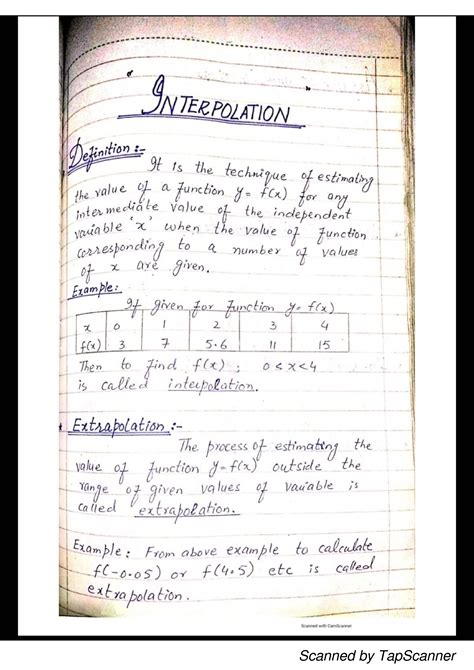 INTERPOLATION
Definition :-
It is the technique of estimating
the value of a function y = f(x) for any
intermediate value of the independent
variable 'x' when the value of function
corresponding to a number of values
of x are given.
Example:
If given for function y = f(x)
x 0 1 2 3 4
f(x) 3 7 5.6 11 15
Then to find f(x) ; 0<x<4
is called interpolation.
* Extrapolation :-
The process of estimating the
value of function y=f(x) outside the
range of given values of variable is
called extrapolation.
Example: From above example to calculate
f(-0.05) or f(4.5) etc is called
extrapolation.
Scanned with CamScanner
Scanned by TapScanner